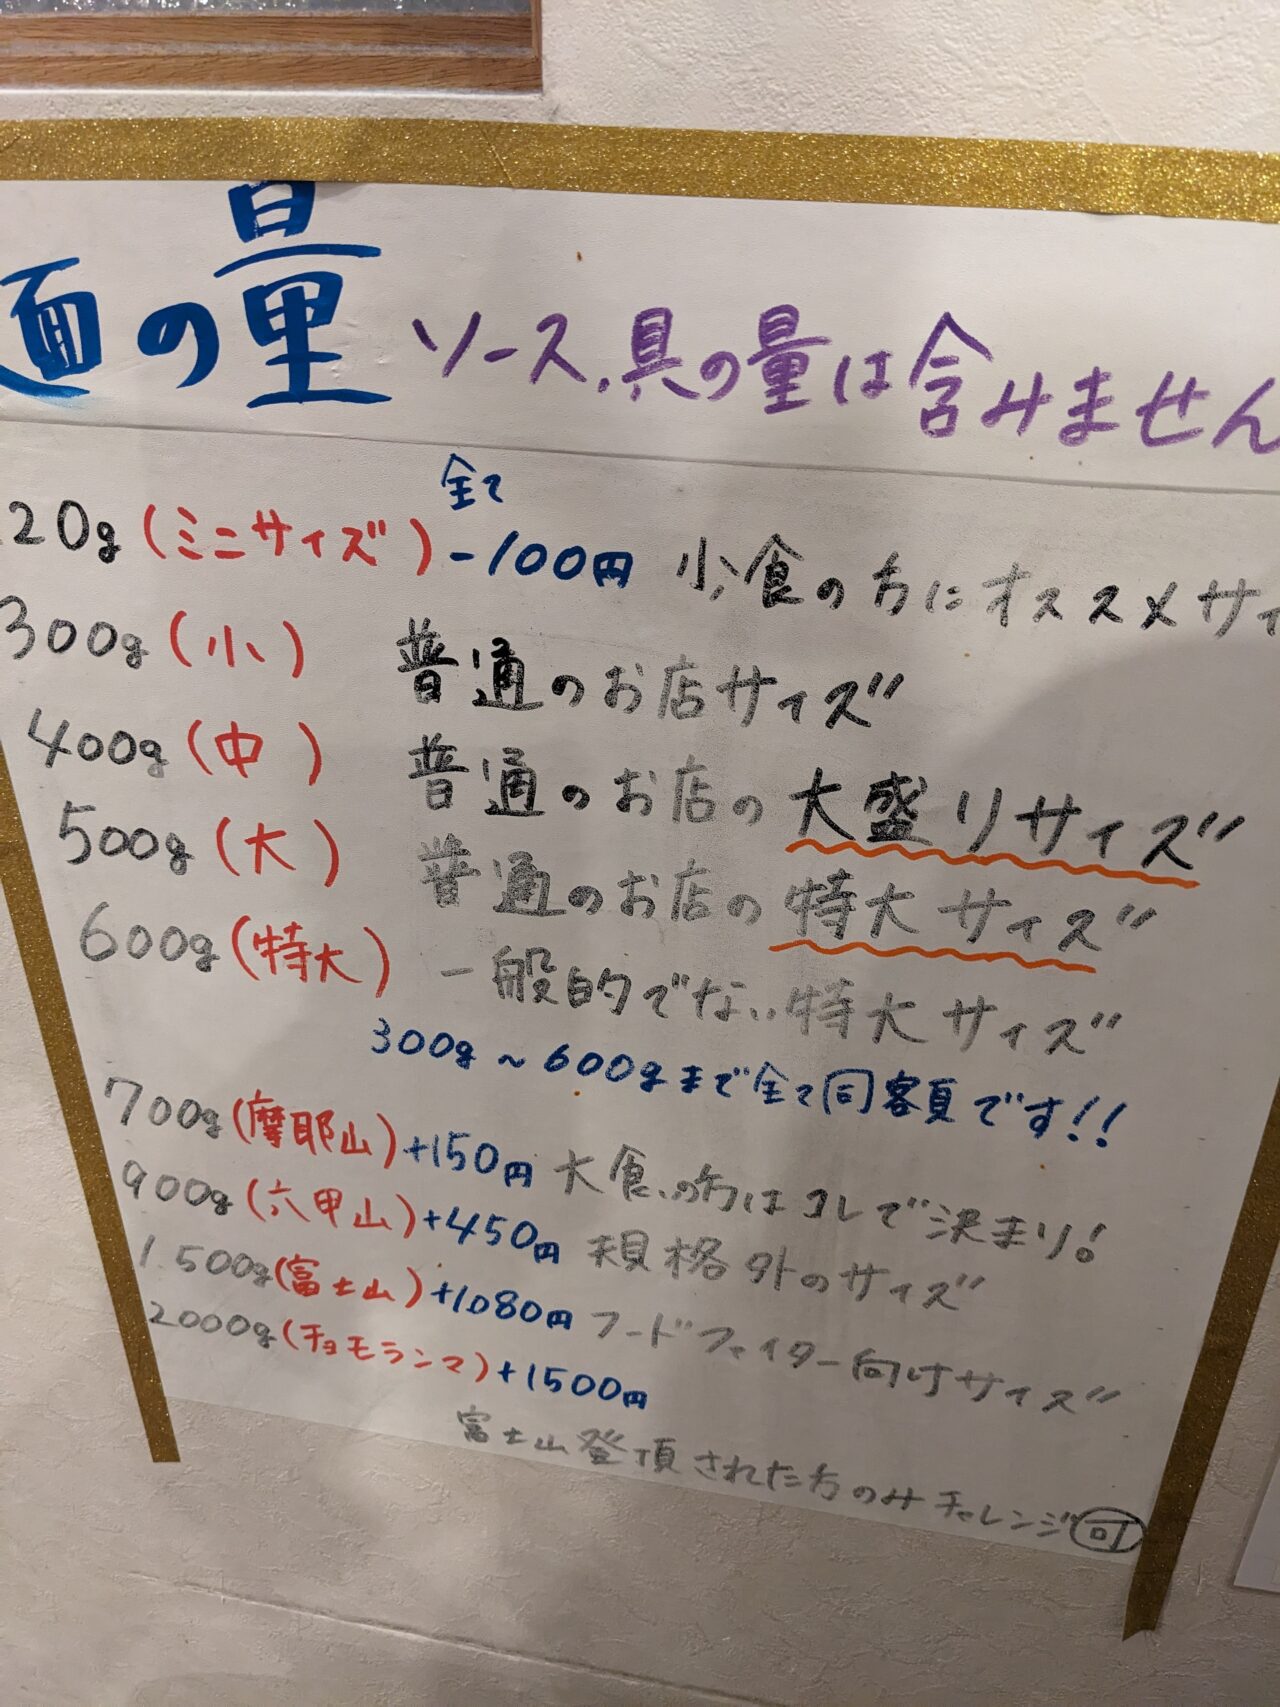 麺の量 ソース、具の量は含みません
20g(ミニサイズ) 全て -100円 小食の方にオススメサイ
300g(小) 普通のお店サイズ
400g(中) 普通のお店の大盛りサイズ
500g(大) 普通のお店の特大サイズ
600g(特大) 一般的でない特大サイズ
300g～600gまで全て同額です!!
700g(摩耶山)+150円 大食いの方はコレで決まり!
900g(六甲山)+450円 規格外のサイズ
1.500g(富士山)+1.080円 フードファイター向けサイズ
2000g(チョモランマ)+1500円
富士山登頂された方のみチャレンジ可